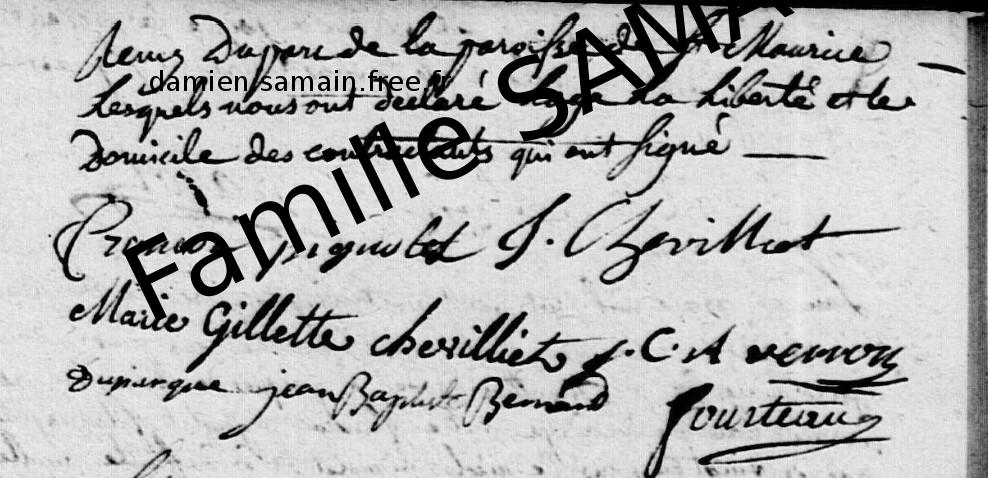 Remy Duparc de la paroisse de St Maurice
damien.samain.free.fr
lesquels nous ont declaré l'age la liberté et le
Domicile des contractants qui ont signé
Famille SAMA
Pignolet J. Chevilliet
Marie Gillette chevilliet J. C. A vernon
Duparcque jean Baptiste Bernard